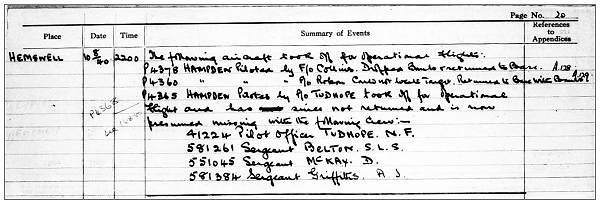 Page No. 20
Place Date Time Summary of Events References to Appendices
HEMSWELL 10 8/40 2200 The following aircraft took off for operational flights:-
P4378 HAMPDEN Piloted by F/O Collins. Dropped Bombs returned to Base. A.128
P4360 " " " P/O Crew not locate Target. Returned to Base with Bombs. A.129
P4365 HAMPDEN Piloted by P/O TUDHOPE took off for operational
flight and has since not returned and is now
presumed missing with the following Crew:-
41224 Pilot Officer TUDHOPE. N.F.
581261 Sergeant BELTON. S.L.S.
551045 Sergeant MCKAY. D.
581384 Sergeant Griffiths A J